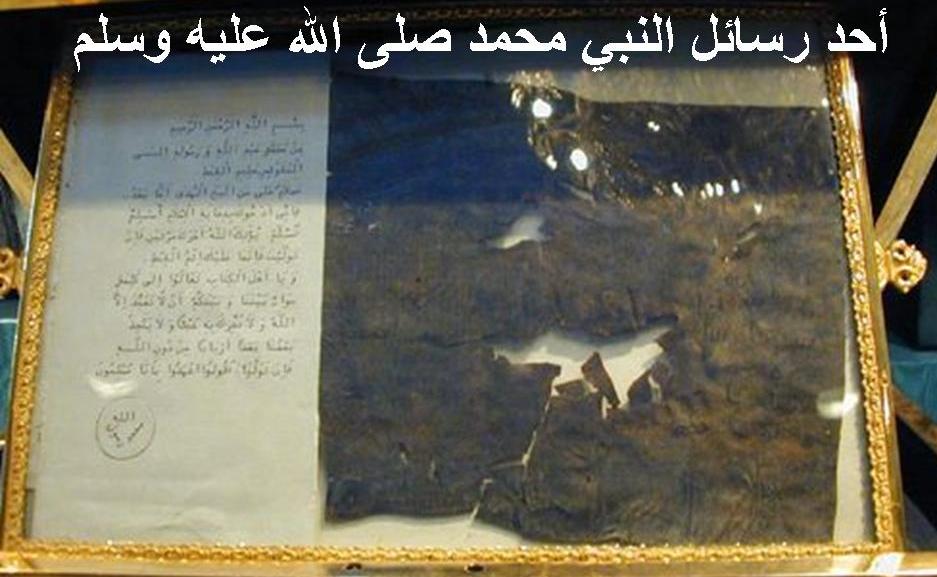 أحد رسائل النبي محمد صلى الله عليه وسلم
بِسْمِ اللَّهِ الرَّحْمَنِ الرَّحِيمِ
مِنْ مُحَمَّدٍ عَبْدِ اللَّهِ وَ رَسُولِهِ إِلَى
الْمُقَوْقِسِ عَظِيمِ الْقِبْطِ
سَلَامٌ عَلَى مَنِ اتَّبَعَ الْهُدَى أَمَّا بَعْدُ
فَإِنِّي أَدْعُوكَ بِدِعَايَةِ الْإِسْلَامِ أَسْلِمْ
تَسْلَمْ يُؤْتِكَ اللَّهُ أَجْرَكَ مَرَّتَيْنِ فَإِنْ
تَوَلَّيْتَ فَإِنَّمَا عَلَيْكَ إِثْمُ الْقِبْطِ
وَ يَا أَهْلَ الْكِتَابِ تَعَالَوْا إِلَى كَلِمَةٍ
سَوَاءٍ بَيْنَنَا وَ بَيْنَكُمْ أَنْ لَا نَعْبُدَ إِلَّا
اللَّهَ وَ لَا نُشْرِكَ بِهِ شَيْئًا وَ لَا يَتَّخِذَ
بَعْضُنَا بَعْضًا أَرْبَابًا مِنْ دُونِ اللَّهِ
فَإِنْ تَوَلَّوْا فَقُولُوا اشْهَدُوا بِأَنَّا مُسْلِمُونَ
الله
رسول
محمد